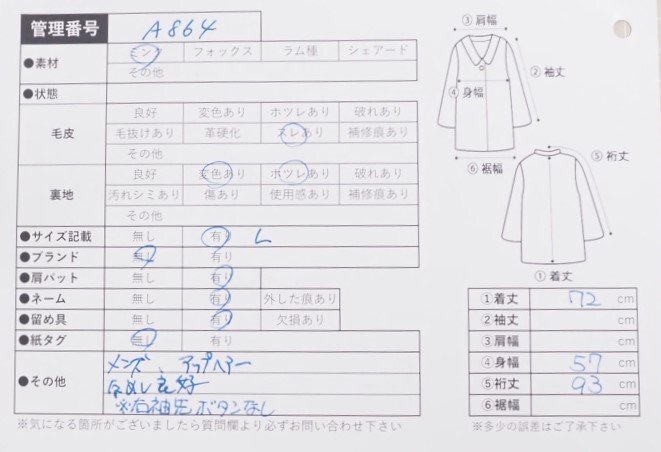 管理番号 A864
●素材 ミンク フォックス ラム種 シェアード
その他
●状態
毛皮 良好 変色あり ホツレあり 破れあり
毛抜けあり 革硬化 スレあり 補修痕あり
その他
裏地 良好 変色あり ホツレあり 破れあり
汚れシミあり 傷あり 使用感あり 補修痕あり
その他
●サイズ記載 無し 有り L
●ブランド 無し 有り
●肩パット 無し 有り
●ネーム 無し 有り 外した痕あり
●留め具 無し 有り 欠損あり
●紙タグ 無し 有り
●その他 メンズ、アップヘアー
なめし良好
※右袖先ボタンなし
※気になる箇所がございましたら質問欄より必ずお問い合わせ下さい
③肩幅
②袖丈
④身幅
⑥裾幅
⑤裄丈
①着丈
①着丈 72 cm
②袖丈 cm
③肩幅 cm
④身幅 57 cm
⑤裄丈 93 cm
⑥裾幅 cm
※多少の誤差はご了承下さい